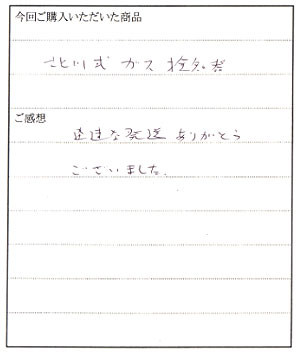 今回ご購入いただいた商品
北川式 ガス 検知器
ご感想
迅速な発送 ありがとう
ございました。